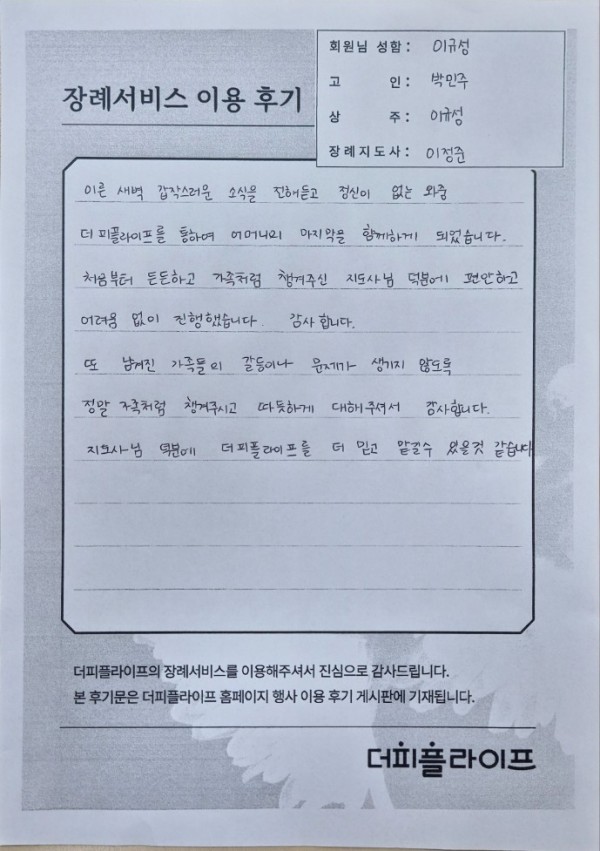 회원님 성함 : 이규성
고 인 : 박민주
상 주 : 이규성
장례지도사 : 이정준
장례서비스 이용 후기
이른 새벽 갑작스러운 소식을 전해듣고 정신이 없는 와중
더피플라이프를 통하여 어머니의 마지막을 함께하게 되었습니다.
처음부터 든든하고 가족처럼 챙겨주신 지도사님 덕분에 편안하고
어려움 없이 진행했습니다. 감사합니다.
또 남겨진 가족들의 갈등이나 문제가 생기지 않도록
정말 가족처럼 챙겨주시고 따듯하게 대해주셔서 감사합니다.
지도사님 덕분에 더피플라이프를 더 믿고 맡길수 있을것 같습니다
더피플라이프의 장례서비스를 이용해주셔서 진심으로 감사드립니다.
본 후기문은 더피플라이프 홈페이지 행사 이용 후기 게시판에 기재됩니다.
더피플라이프